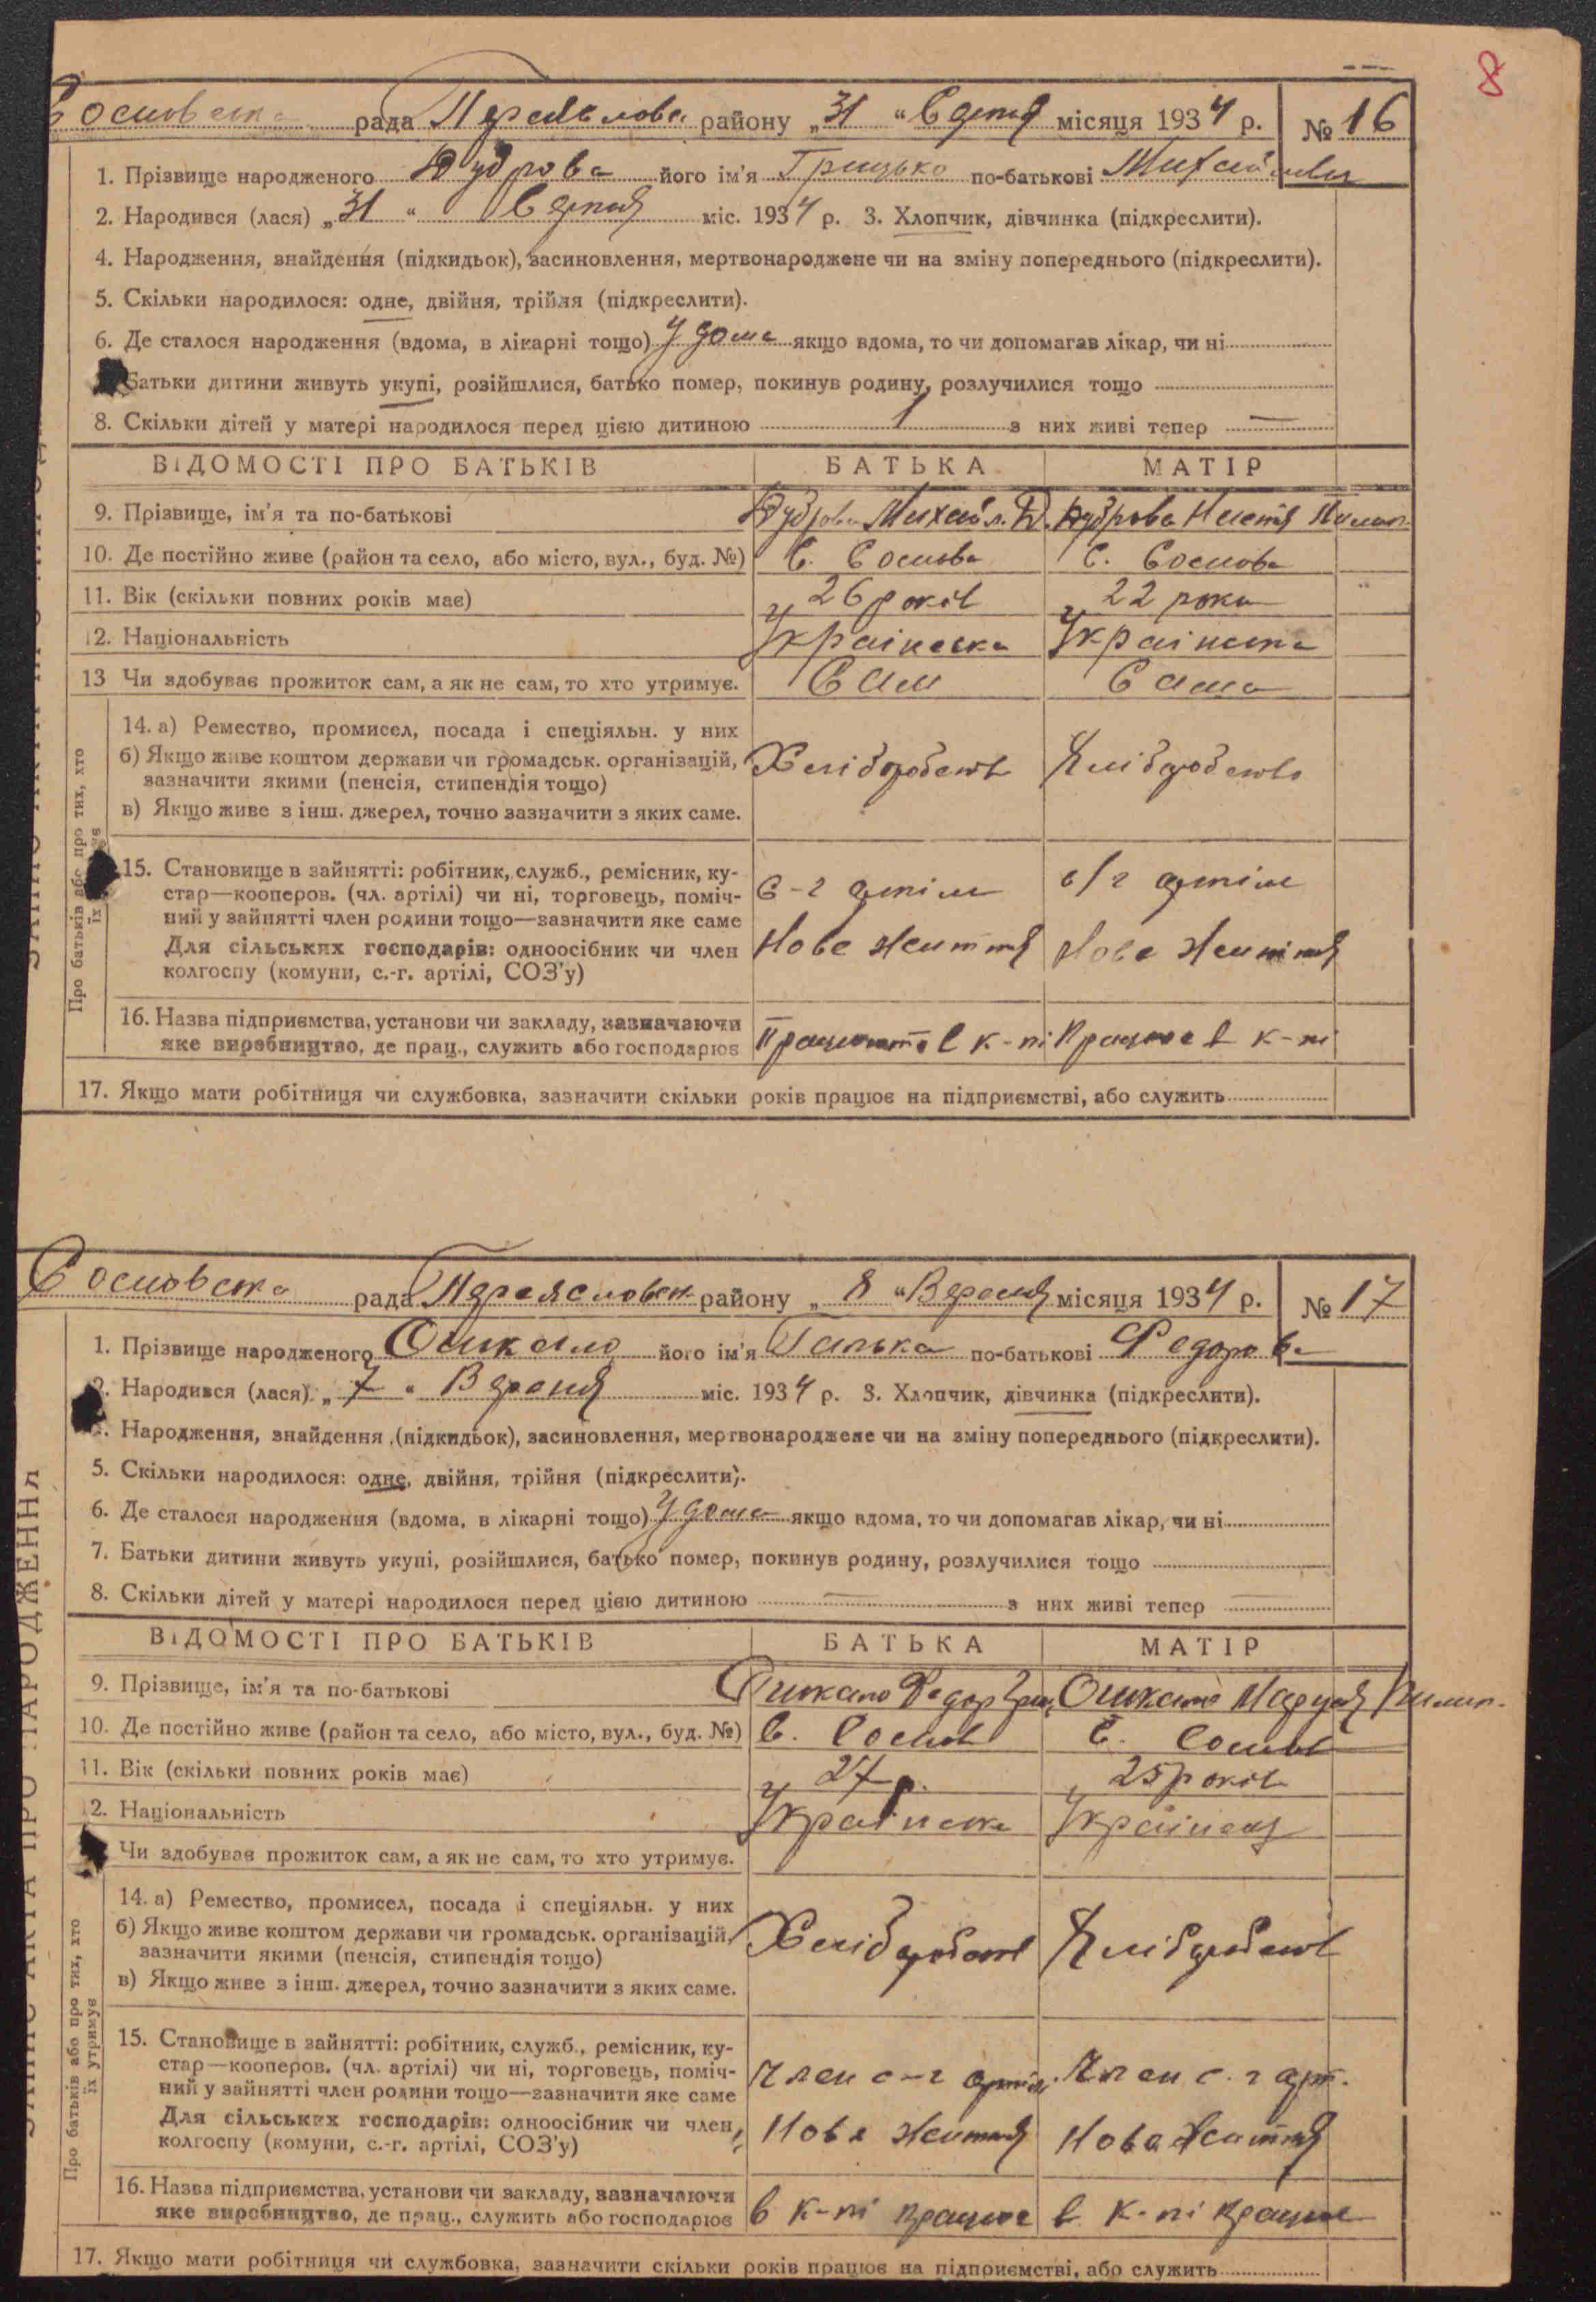 8
Сосновска рада Переяслова району „31“ Серпня місяця 1934 р. № 16
1. Прізвище народженого Дуброва його ім'я Грицько по-батькові Михайлович
2. Народився (лася) „31“ Серпня міс. 1934 р. 3. Хлопчик, дівчинка (підкреслити).
4. Народження, знайдення (підкидьок), засиновлення, мертвонароджене чи на зміну попереднього (підкреслити).
5. Скільки народилося: одне, двійня, трійня (підкреслити).
6. Де сталося народження (вдома, в лікарні тощо) у дома якщо вдома, то чи допомагав лікар, чи ні
Батьки дитини живуть укупі, розійшлися, батько помер, покинув родину, розлучилися тощо
8. Скільки дітей у матері народилося перед цією дитиною 1 з них живі тепер —
ВІДОМОСТІ ПРО БАТЬКІВ БАТЬКА МАТІР
9. Прізвище, ім'я та по-батькові Дуброва Михайл. Д. Дуброва Настя Пилип.
10. Де постійно живе (район та село, або місто, вул., буд. №) С. Соснова С. Соснова
11. Вік (скільки повних років має) 26 років 22 роки
12. Національність Українська Українська
13 Чи здобуває прожиток сам, а як не сам, то хто утримує. Сам Сама
Про батьків або про тих, хто їх утримує
14. а) Ремество, промисел, посада і спеціяльн. у них
б) Якщо живе коштом держави чи громадськ. організацій, зазначити якими (пенсія, стипендія тощо) Хліборобств Хліборобство
в) Якщо живе з інш. джерел, точно зазначити з яких саме.
15. Становище в зайнятті: робітник, служб., ремісник, ку-
стар—кооперов. (чл. артілі) чи ні, торговець, поміч- с-г артіли с/г артіли
ний у зайнятті член родини тощо—зазначити яке саме
Для сільських господарів: одноосібник чи член Нове Життя Нове Життя
колгоспу (комуни, с.-г. артілі, СОЗ'у)
16. Назва підприємства, установи чи закладу, зазначаючи
яке виробництво, де прац., служить або господарює Працює в к-пі Працює в к-пі
17. Якщо мати робітниця чи службовка, зазначити скільки років працює на підприємстві, або служить
Сосновска рада Переясловск району „8“ Вересня місяця 1934 р. № 17
1. Прізвище народженого Ошкало його ім'я Галька по-батькові Федоровна
2. Народився (лася) „7“ Вересня міс. 1934 р. 3. Хлопчик, дівчинка (підкреслити).
Народження, знайдення (підкидьок), засиновлення, мертвонароджене чи на зміну попереднього (підкреслити).
5. Скільки народилося: одне, двійня, трійня (підкреслити).
6. Де сталося народження (вдома, в лікарні тощо) у дома якщо вдома, то чи допомагав лікар, чи ні
7. Батьки дитини живуть укупі, розійшлися, батько помер, покинув родину, розлучилися тощо
8. Скільки дітей у матері народилося перед цією дитиною — з них живі тепер —
ВІДОМОСТІ ПРО БАТЬКІВ БАТЬКА МАТІР
9. Прізвище, ім'я та по-батькові Ошкало Федор Гри. Ошкало Маруся Пилип.
10. Де постійно живе (район та село, або місто, вул., буд. №) С. Соснов С. Соснов
11. Вік (скільки повних років має) 27 р. 25 років
12. Національність Українська Українец
Чи здобуває прожиток сам, а як не сам, то хто утримує.
Про батьків або про тих, хто їх утримує
14. а) Ремество, промисел, посада і спеціяльн. у них
б) Якщо живе коштом держави чи громадськ. організацій, зазначити якими (пенсія, стипендія тощо) Хліборобств Хліборобств
в) Якщо живе з інш. джерел, точно зазначити з яких саме.
15. Становище в зайнятті: робітник, служб., ремісник, ку-
стар—кооперов. (чл. артілі) чи ні, торговець, поміч- Член с-г артіл. Член с.г арт.
ний у зайнятті член родини тощо—зазначити яке саме
Для сільських господарів: одноосібник чи член Нове Життя Нове Життя
колгоспу (комуни, с.-г. артілі, СОЗ'у)
16. Назва підприємства, установи чи закладу, зазначаючи
яке виробництво, де прац., служить або господарює в к-пі працює в к-пі працює
17. Якщо мати робітниця чи службовка, зазначити скільки років працює на підприємстві, або служить